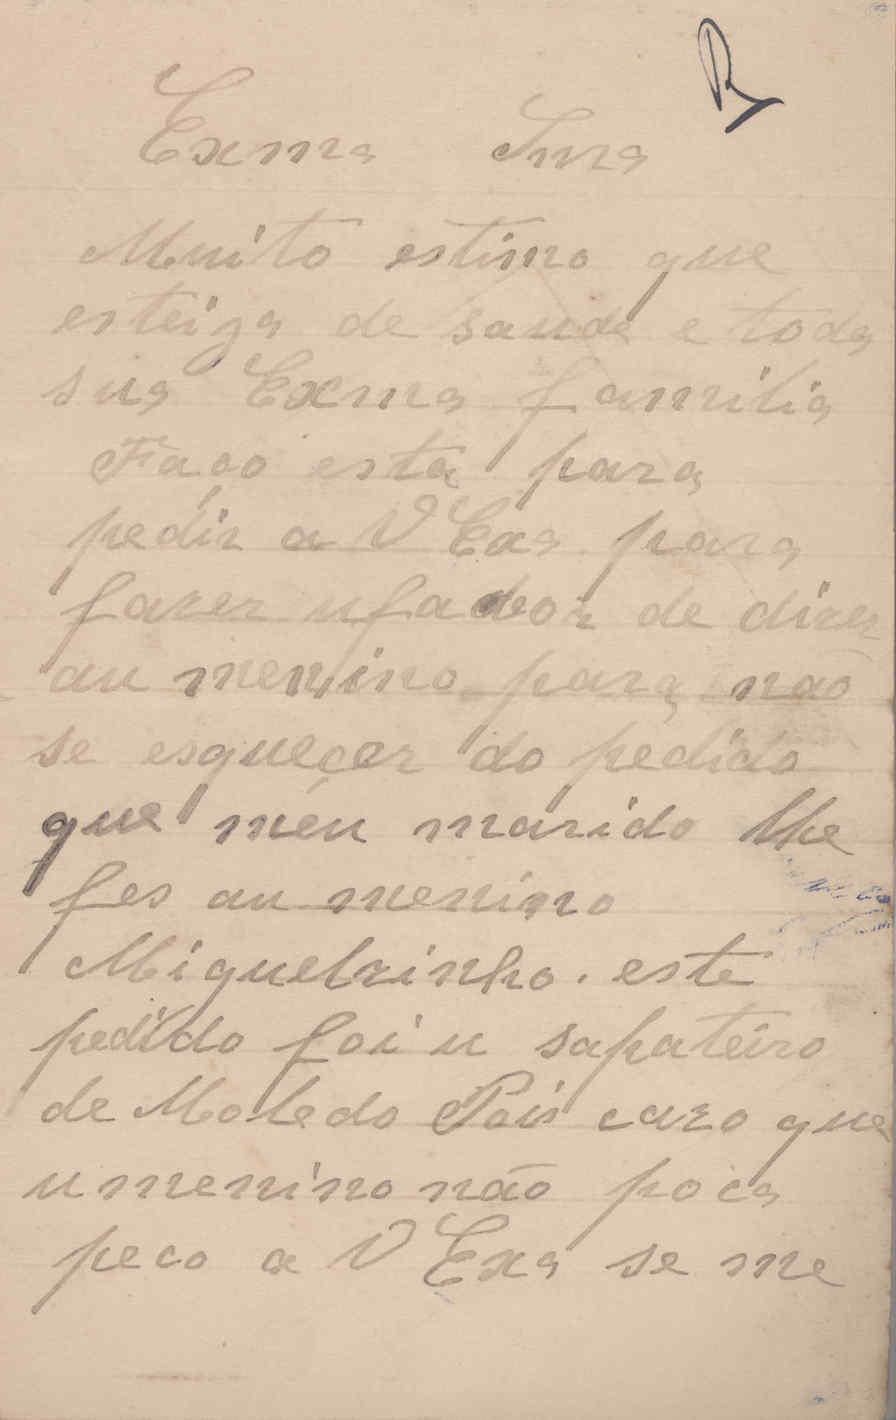 R
Exma Snra
Muito estimo que
esteija de saude e toda
sua Exma familia
Faço esta para
pedir a V Exa para
fazer u favor de dizer
au menino para não
se esqueçer do pedido
que méu marido lhe
fes au menino
Miguelzinho. este
pedido foi u sapateiro
de Moledo Pois cazo que
u menino não poca
peco a V Exa se me